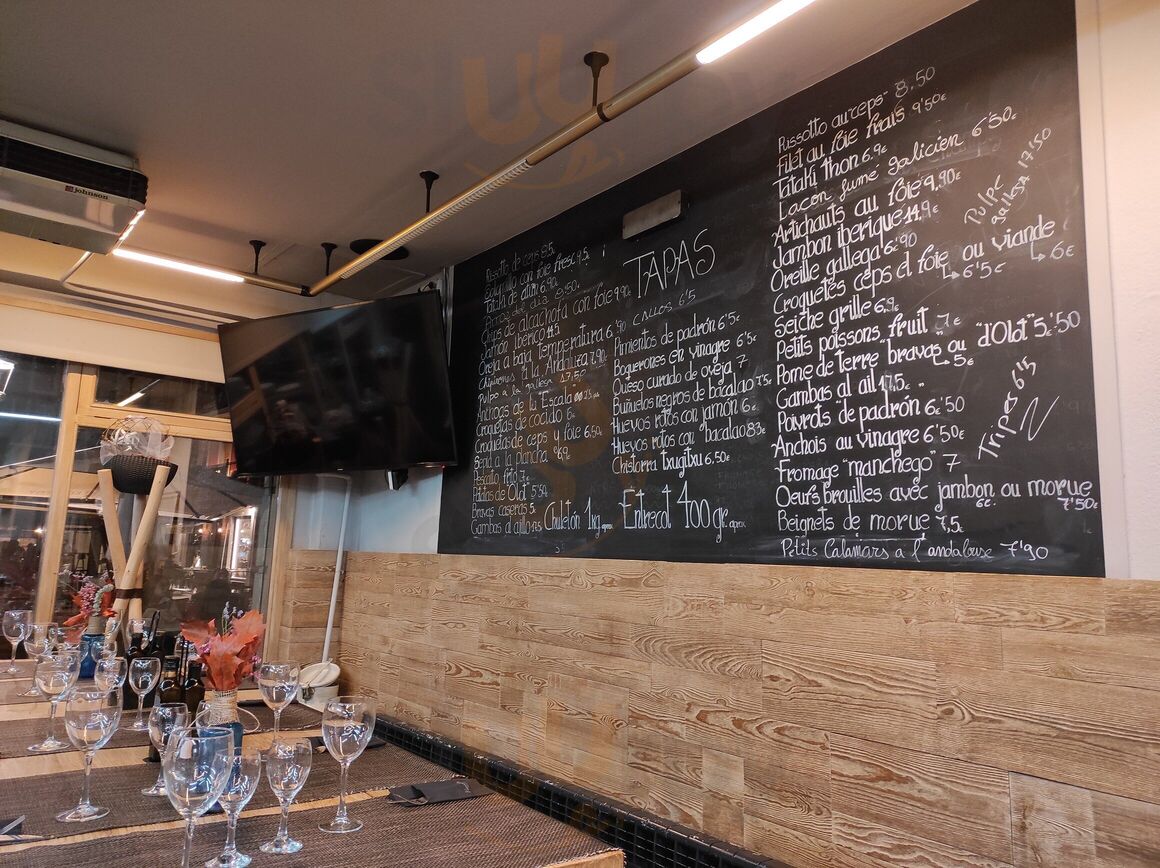 johnson
TAPAS
Rissotto de ceps 8.5
Solomillo con foie fresc 9.5
Tataki de atún 6.90
8.50
Chips de alcachofa con foie 9.90
Jamón Ibérico 14.5
Oreja a baja temperatura 6'90
Chipirones a la Andaluza 7.90
Pulpo a la gallega 17.50
Anchoas de la Escala
Croquetas de cocido 6
Croquetas de ceps y foie 6.50
Sepia a la plancha 6.9€
Pescaíto frito 7€
Patatas de "Olot" 5'50
Bravas caseras 5
Gambas al ajillo 17.5
CALLOS 6'5
Pimientos de padrón 6'5€
Boquerones en vinagre 6'5€
Queso curado de oveja 7
Buñuelos negros de bacalao 7.5€
Huevos rotos con jamón 6€
Huevos rotos con bacalao
Chistorra txugitxu 6.50€
Chuletón 1kg aprox
Entrecot 400 gr. aprox
Rissotto au ceps 8.50
Filet au foie frais 9'50€
Tataki thon 6.9€
Lacon fumé galicien 6'50€
Artichauts au foie 9.90€
Jambon iberique 14.9€
Oreille gallega 6'90
Croquetes ceps et foie ou viande
↳ 6'5€ ↳ 6€
Seiche grille 6.9€
Petits poissons fruit 7€
Pome de terre "bravas" ou "d'Olot" 5'50
↳ 5€
Gambas al ail 17.5€
Poivrots de padrón 6'50
Anchois au vinagre 6'50€
Fromage "manchego" 7
Oeufs brouilles avec jambon ou morue
6€ 7'50€
Beignets de morue 7,5€
Petits Calamars a l'andalouse 7'90
Pulpe gallega 17'50
Tripes 6'5